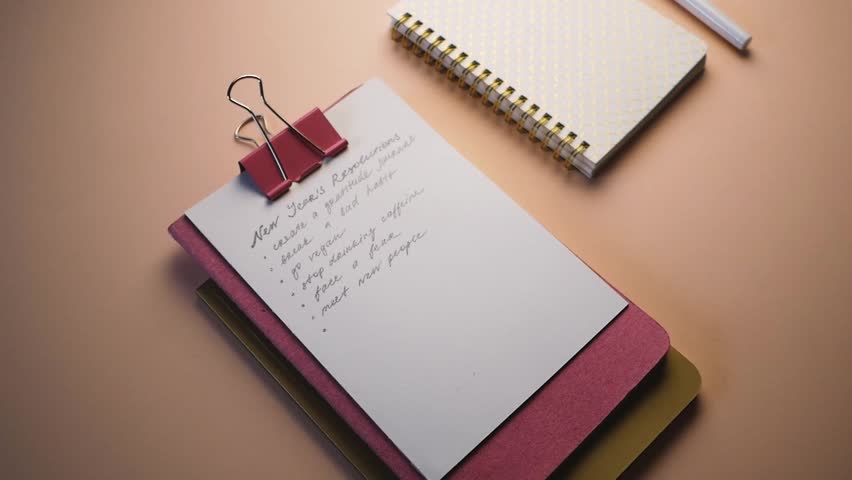 New Year's Resolutions
• create a gratitude journal
• break a bad habit
• go vegan
• stop drinking caffeine
• face a fear
• meet new people
•